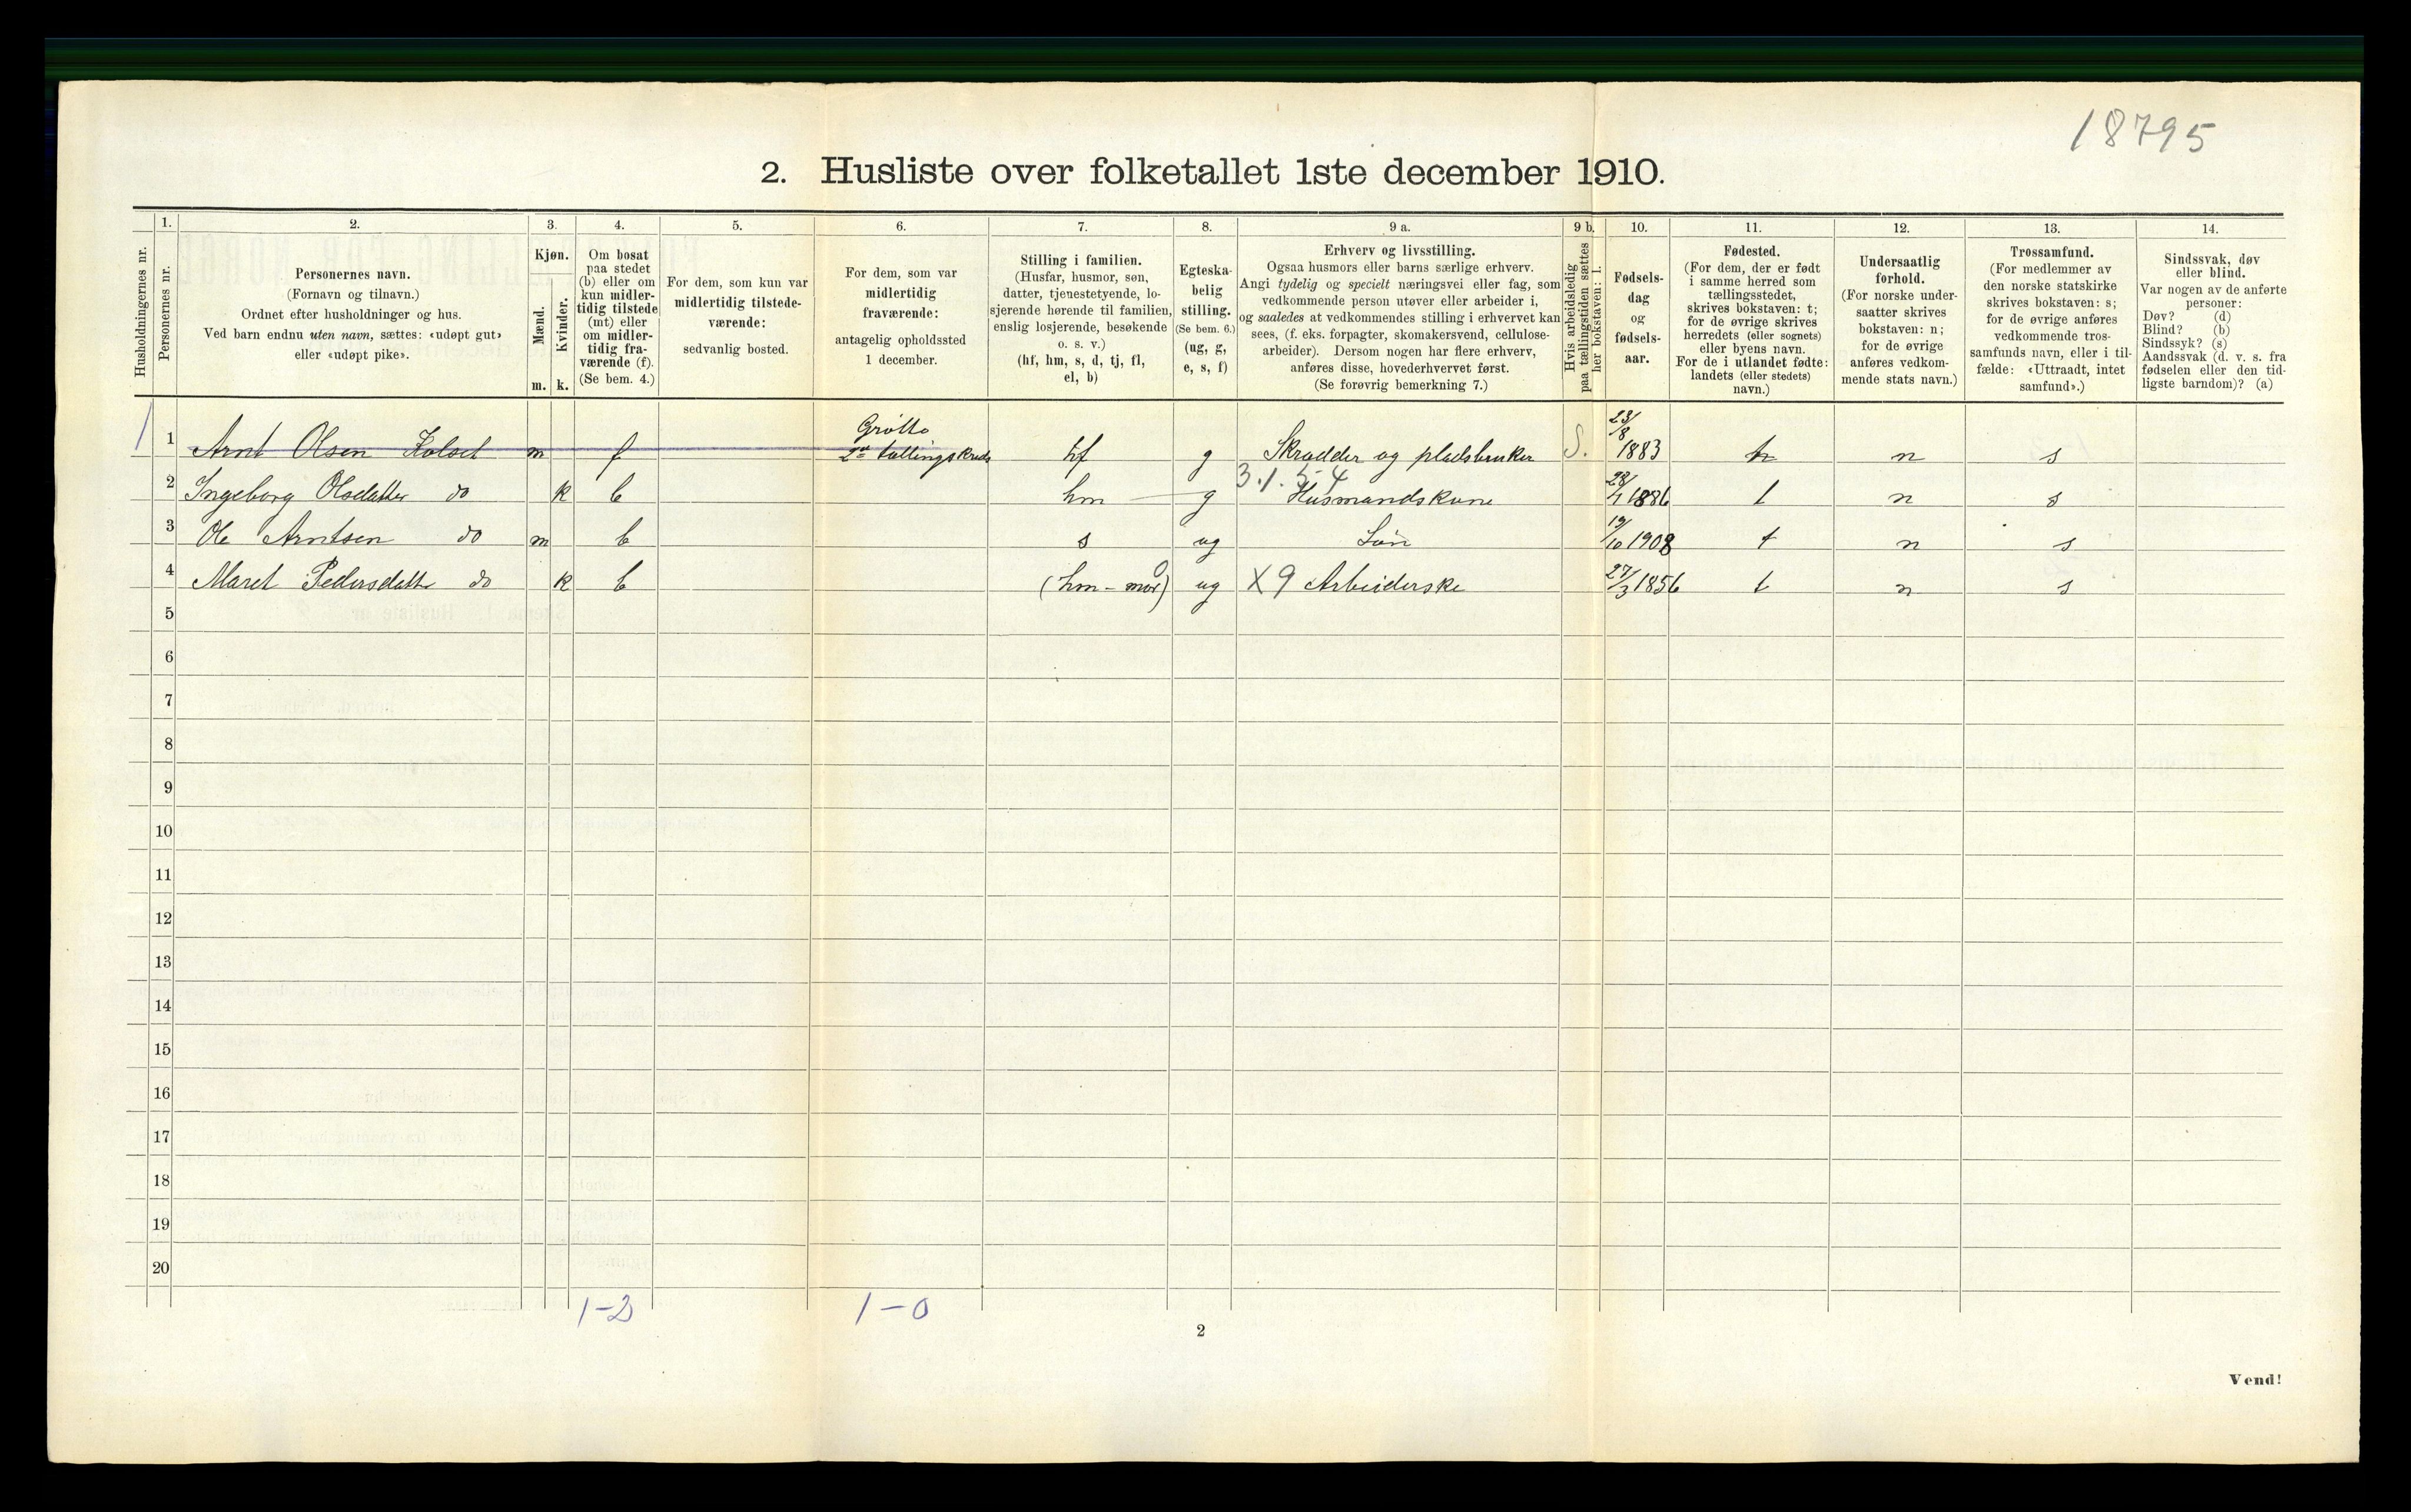 18795
2. Husliste over folketallet 1ste december 1910.
Husholdningernes nr.
1.
Personernes nr.
2.
Personernes navn.
(Fornavn og tilnavn.)
Ordnet efter husholdninger og hus.
Ved barn endnu uten navn, sættes: «udøpt gut»
eller «udøpt pike».
3.
Kjøn.
Mænd.
Kvinder.
m. k.
4.
Om bosat
paa stedet
(b) eller om
kun midler-
tidig tilstede
(mt) eller
om midler-
tidig fra-
værende (f).
(Se bem. 4.)
5.
For dem, som kun var
midlertidig tilstede-
værende:
sedvanlig bosted.
6.
For dem, som var
midlertidig
fraværende:
antagelig opholdssted
1 december.
7.
Stilling i familien.
(Husfar, husmor, søn,
datter, tjenestetyende, lo-
sjerende hørende til familien,
enslig losjerende, besøkende
o. s. v.)
(hf, hm, s, d, tj, fl,
el, b)
8.
Egteska-
belig
stilling.
(Se bem. 6.)
(ug, g,
e, s, f)
9 a.
Erhverv og livsstilling.
Ogsaa husmors eller barns særlige erhverv.
Angi tydelig og specielt næringsvei eller fag, som
vedkommende person utøver eller arbeider i,
og saaledes at vedkommendes stilling i erhvervet kan
sees, (f. eks. forpagter, skomakersvend, cellulose-
arbeider). Dersom nogen har flere erhverv,
anføres disse, hovederhvervet først.
(Se forøvrig bemerkning 7.)
9 b.
Hvis arbeidsledig
paa tællingstiden sættes
her bokstaven: l.
10.
Fødsels-
dag
og
fødsels-
aar.
11.
Fødested.
(For dem, der er født
i samme herred som
tællingsstedet,
skrives bokstaven: t;
for de øvrige skrives
herredets (eller sognets)
eller byens navn.
For de i utlandet fødte:
landets (eller stedets)
navn.)
12.
Undersaatlig
forhold.
(For norske under-
saatter skrives
bokstaven: n;
for de øvrige
anføres vedkom-
mende stats navn.)
13.
Trossamfund.
(For medlemmer av
den norske statskirke
skrives bokstaven: s;
for de øvrige anføres
vedkommende tros-
samfunds navn, eller i til-
fælde: «Uttraadt, intet
samfund».)
14.
Sindssvak, døv
eller blind.
Var nogen av de anførte
personer:
Døv? (d)
Blind? (b)
Sindssyk? (s)
Aandssvak (d. v. s. fra
fødselen eller den tid-
ligste barndom)? (a)
1 1 Arnt Olsen m f Grötto 2 tællingskreds hf g Skrædder og pladsbruker S. 23/8 1883 n s
3.1.5-4
2 Ingeborg Olsdatter do k b hm g Husmandskone 28/1 1886 t n s
3 Ole Arntsen do m b s ug Sön 19/10 1908 t n s
4 Maret Pedersdatt do k b (hm-mor) 0 ug X9 Arbeiderske 27/3 1856 t n s
5
6
7
8
9
10
11
12
13
14
15
16
17
18
19
20
1-2 1-0
2
Vend!